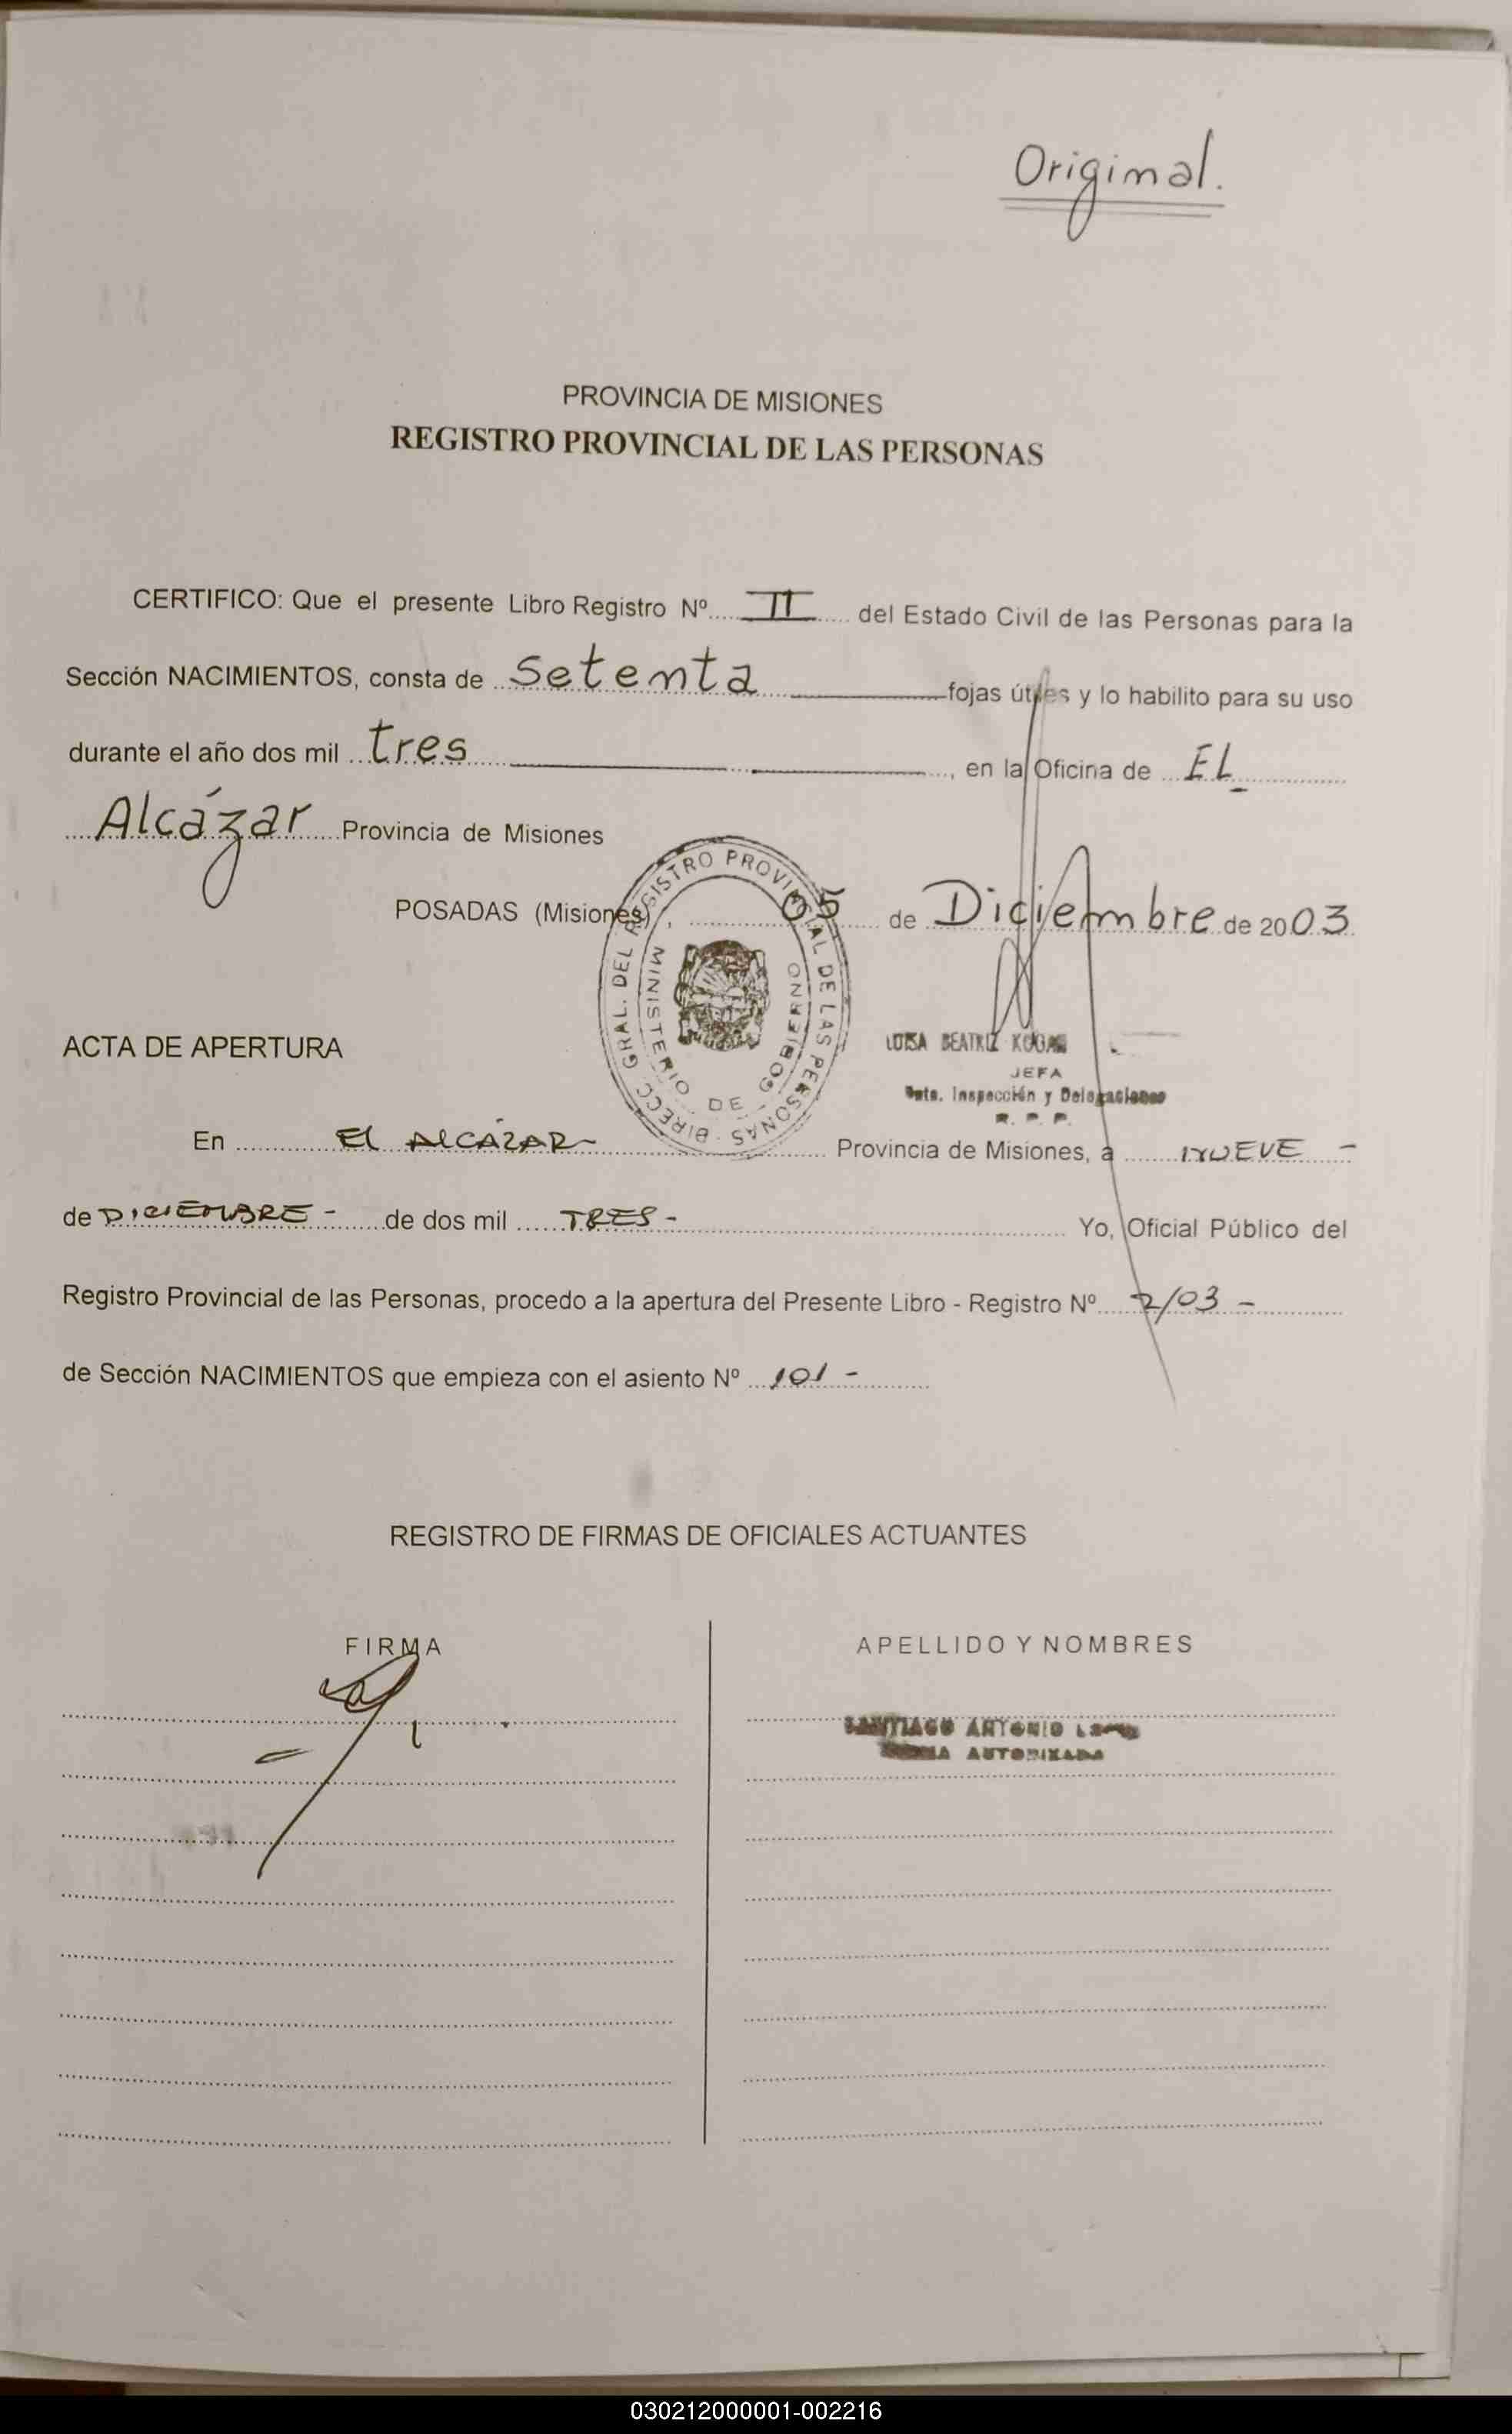 Original.
PROVINCIA DE MISIONES
REGISTRO PROVINCIAL DE LAS PERSONAS
CERTIFICO: Que el presente Libro Registro Nº II del Estado Civil de las Personas para la
Sección NACIMIENTOS, consta de Setenta fojas útiles y lo habilito para su uso
durante el año dos mil tres, en la Oficina de EL
Alcázar Provincia de Misiones
POSADAS (Misiones), 05 de Diciembre de 2003
DIRECC. GRAL. DEL REGISTRO PROVINCIAL DE LAS PERSONAS
MINISTERIO DE GOBIERNO
LUISA BEATRIZ KOGAN
JEFA
Dpto. Inspección y Delegaciones
R. P. P.
ACTA DE APERTURA
En El ALCÁZAR- Provincia de Misiones, a NUEVE -
de DICIEMBRE - de dos mil TRES - Yo, Oficial Público del
Registro Provincial de las Personas, procedo a la apertura del Presente Libro - Registro Nº 2/03 -
de Sección NACIMIENTOS que empieza con el asiento Nº 101 -
REGISTRO DE FIRMAS DE OFICIALES ACTUANTES
FIRMA APELLIDO Y NOMBRES
SANTIAGO ANTONIO
AUTORIZADA
030212000001-002216